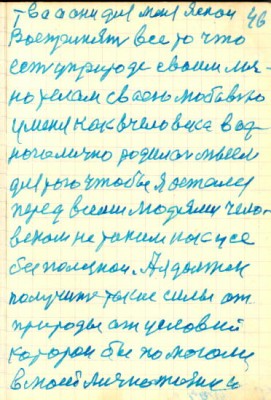 тва они для меня ясны 46
Воспринять все то что
есть у природе своим лич-
но телам с васею любовью
у меня как в человека в од-
ного лично родилась мысль
для того чтобы я остался
перед всеми людями чело-
веком не таким как и все
бесполезной. А я должен
получить такие силы от
природы от условий
которой бы помогали
в моей личной жизни